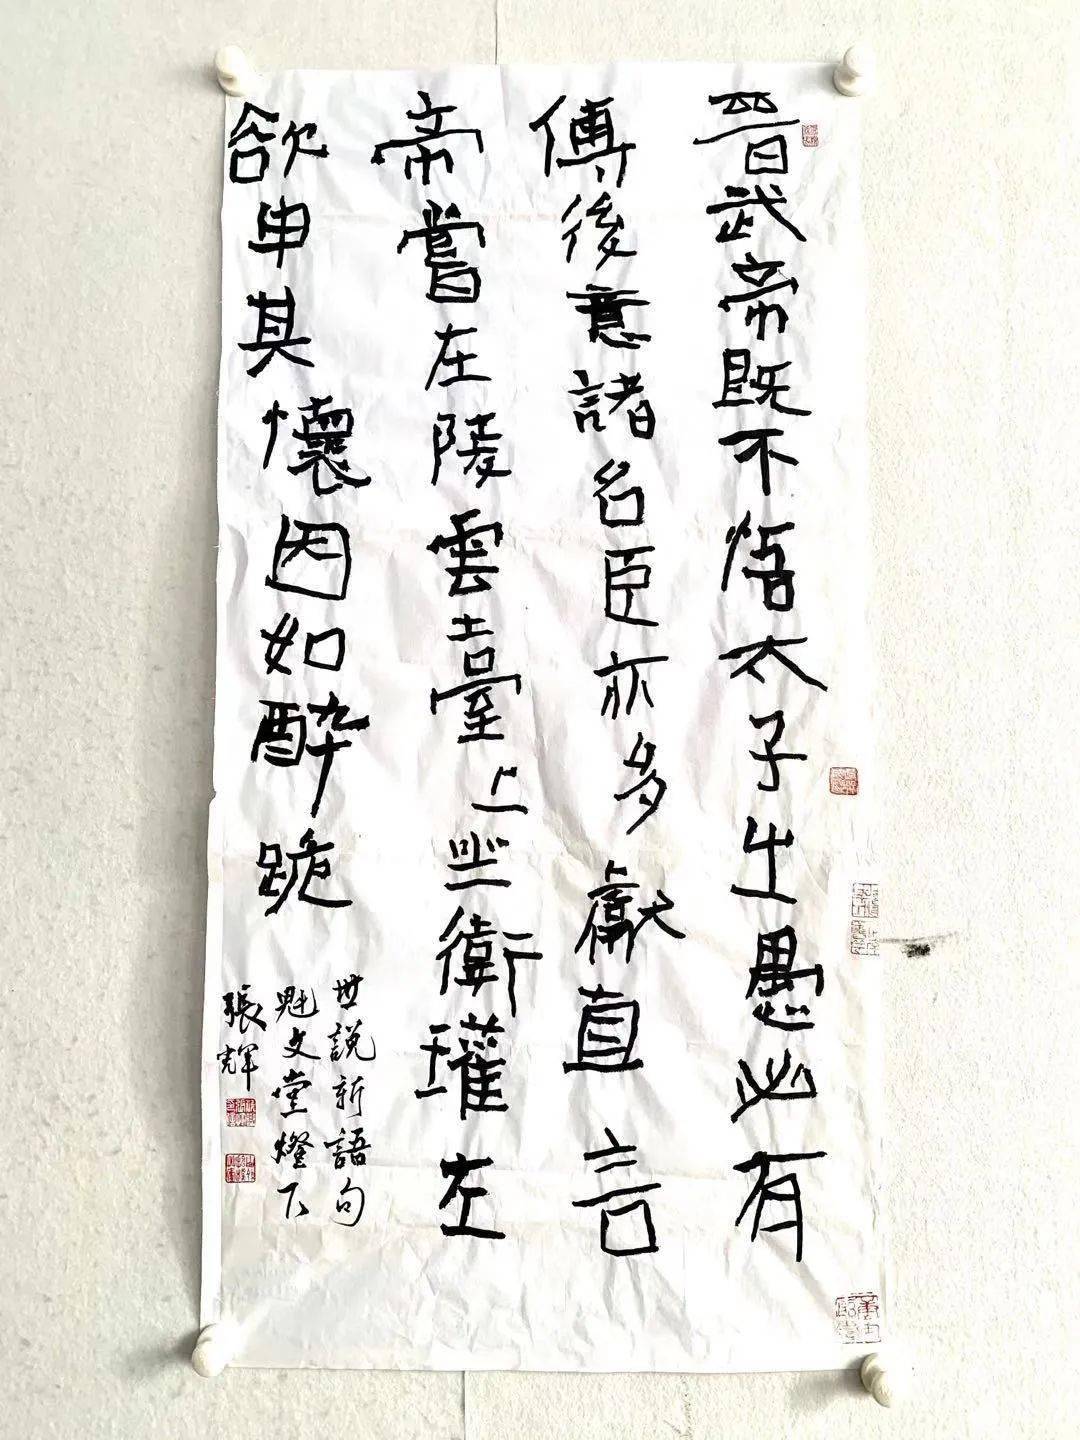 晉武帝既不悟太子之愚必有
傳後意諸名臣亦多獻直言
帝嘗在陵雲臺上坐衛瓘在
欲申其懷因如醉跪
世説新語句
魁文堂燈下
張輝